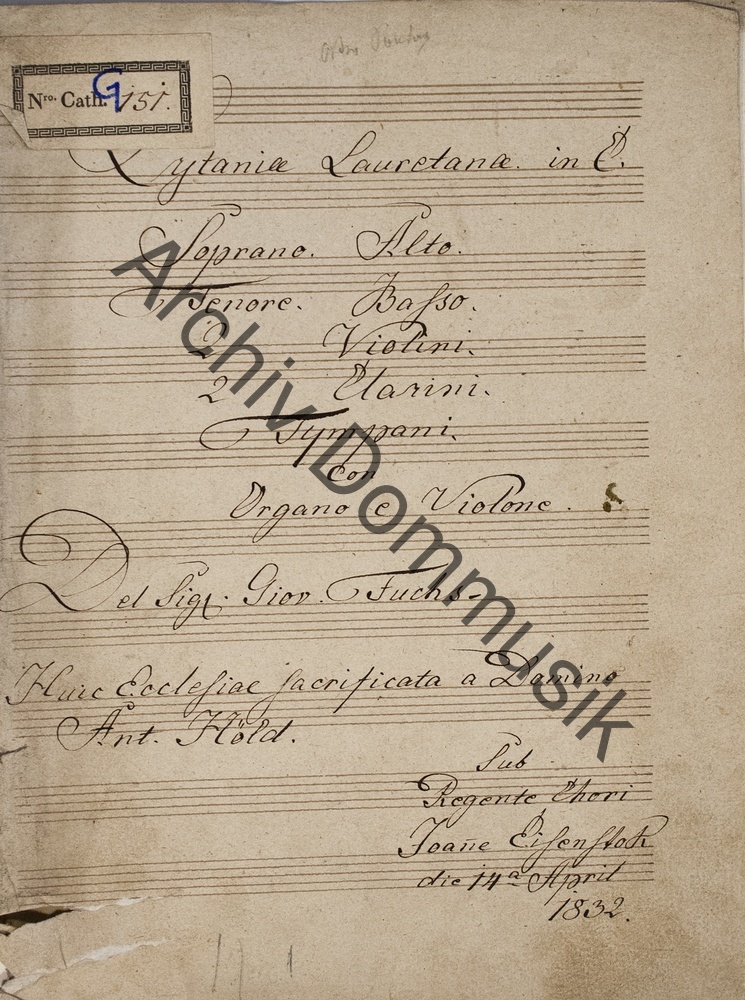 Nro. Cath. G 151.
Lytaniæ Lauretanæ. in C.
Soprano. Alto.
Tenore. Basso.
2 Violini.
2 Clarini.
Tympani.
con
Organo e Violone.
Del Sigl. Giov. Fuchs.
Huic Ecclesiae sacrificata a Domino
Ant. Höld.
Sub
Regente Chori
Joañe Eisenstok
die 14a April
1832.
Archiv Dommusik